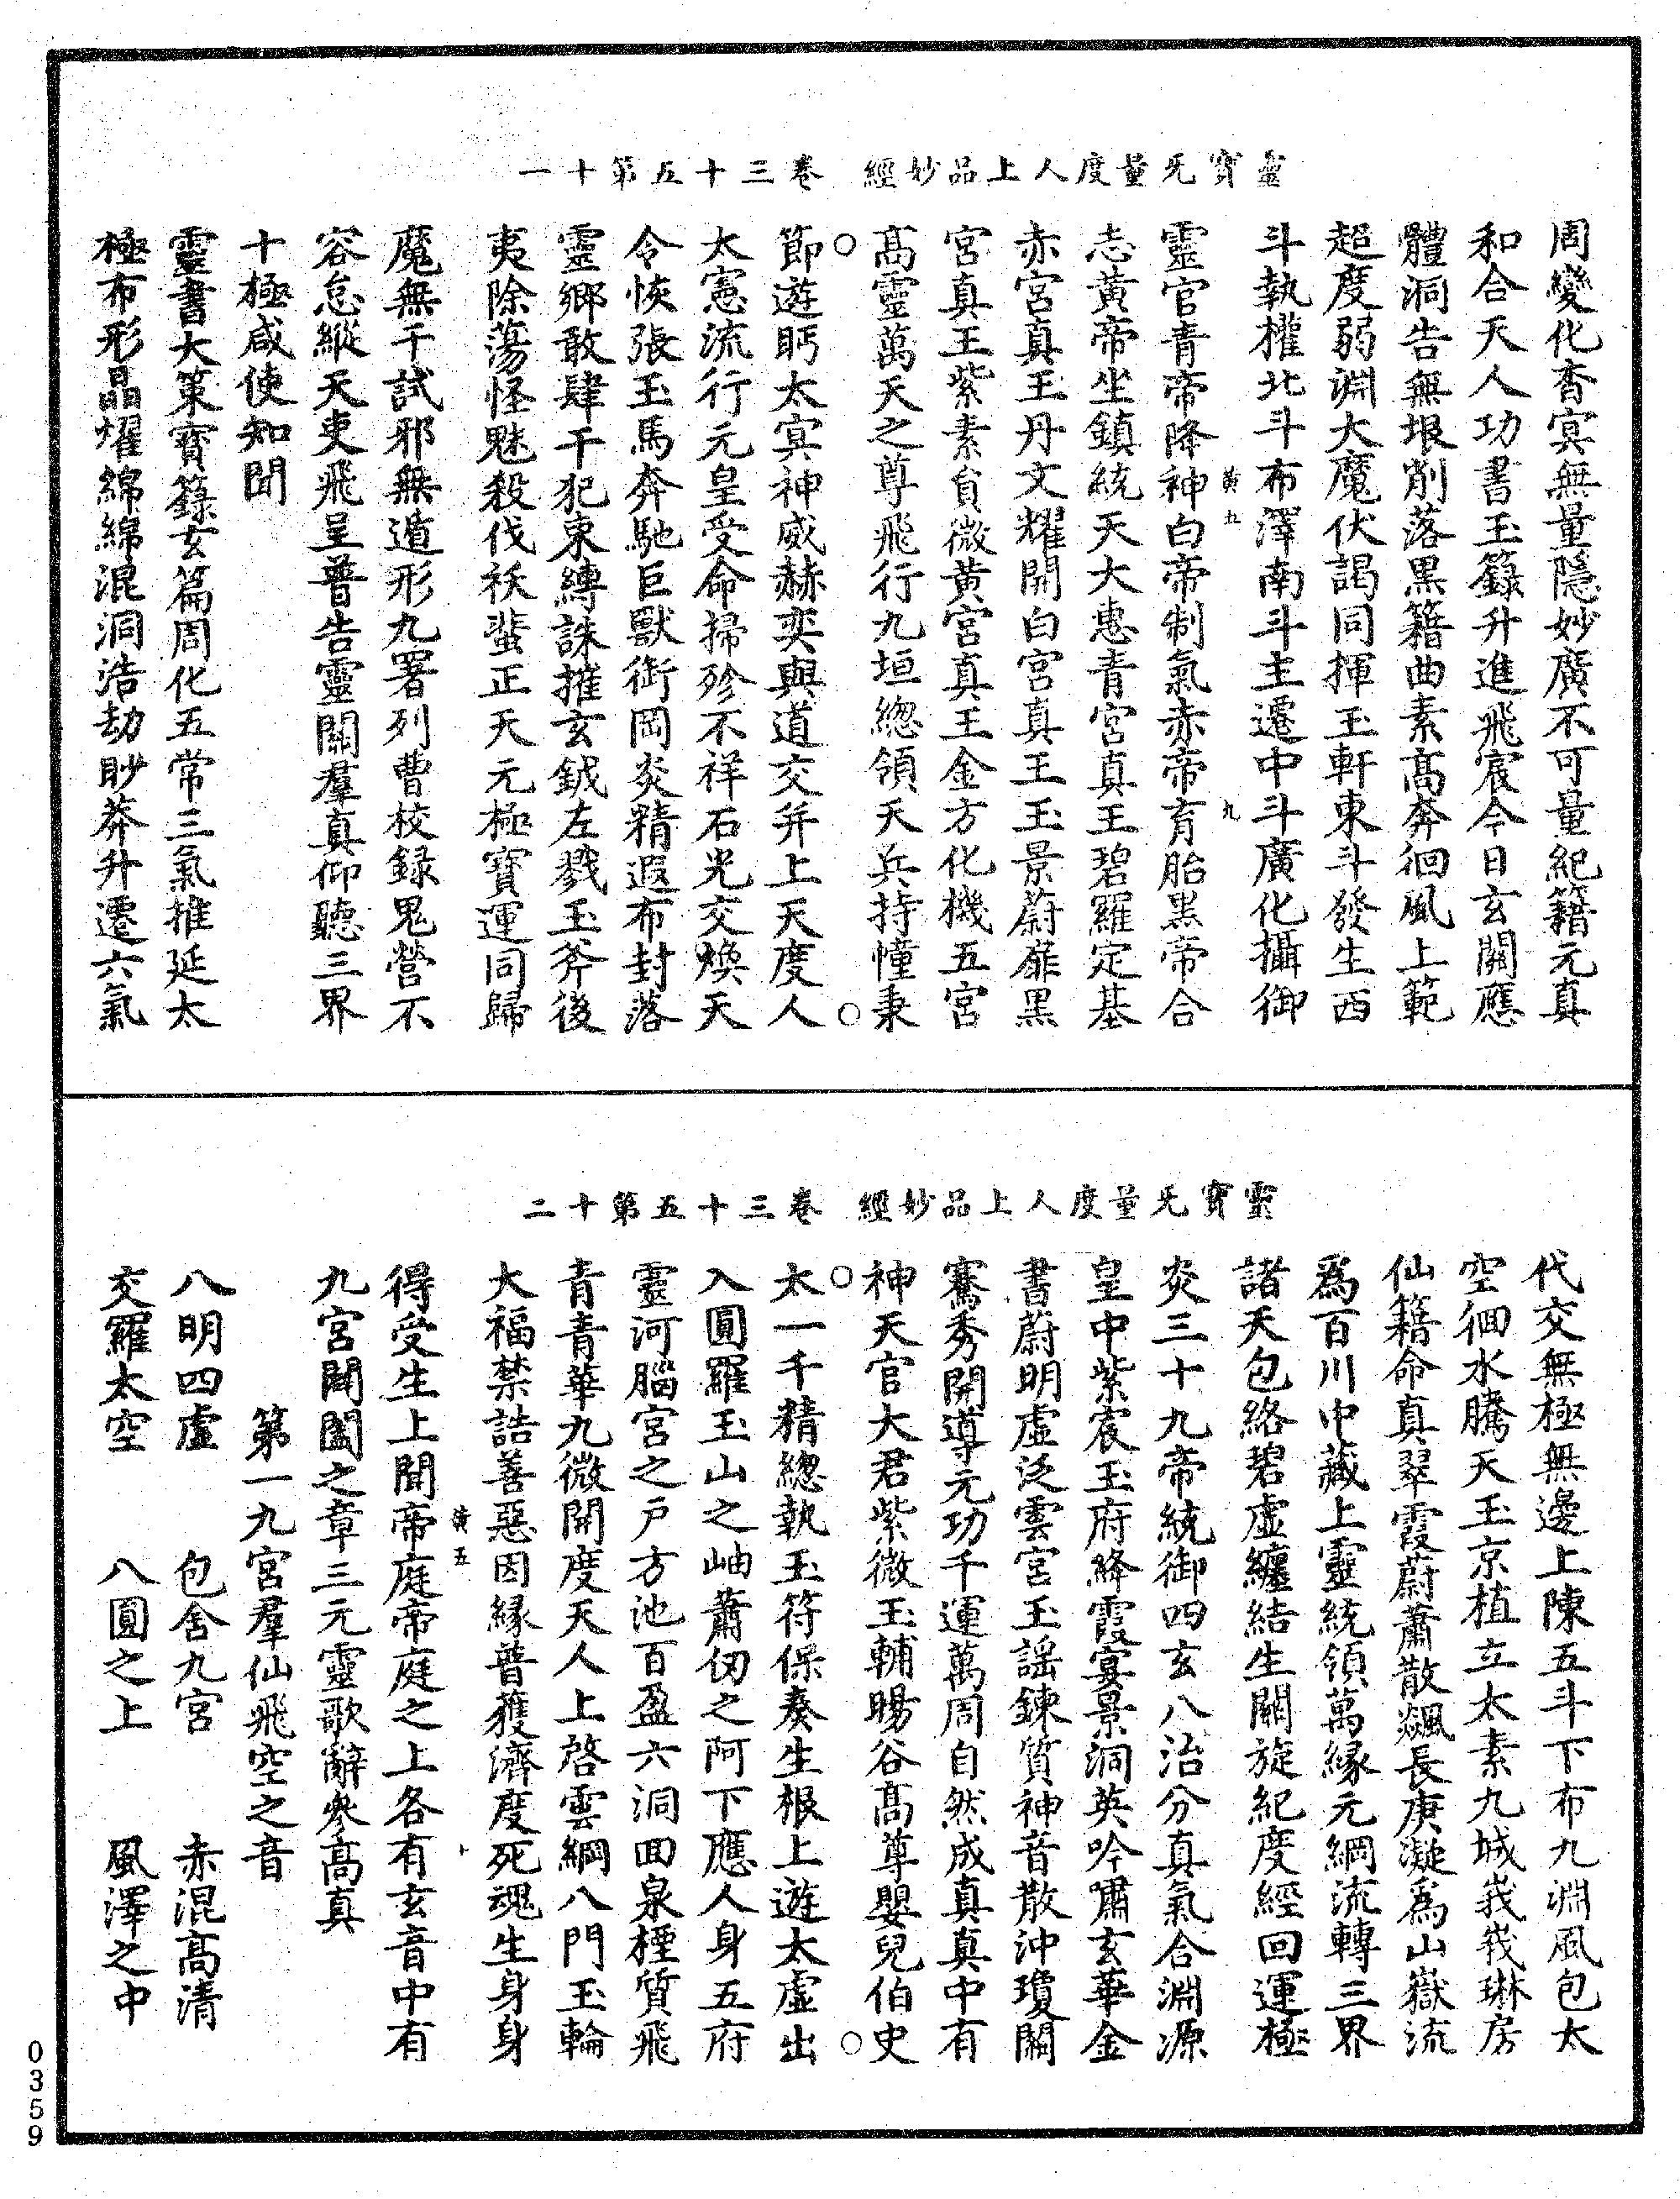 靈寶无量度人上品妙經　卷三十五第十一
周變化杳冥無量隱妙廣不可量紀籍元真
和合天人功書玉籙升進飛宸今日玄關應
體洞告無垠削落黑籍曲素高奔徊風上範
超度弱淵大魔伏謁同揮玉軒東斗發生西
斗執權北斗布澤南斗主遷中斗廣化攝御
黃五　九
靈官青帝降神白帝制氣赤帝育胎黑帝合
志黃帝坐鎮統天大惠青宮真王碧羅定基
赤宮真王丹文耀開白宮真王玉景蔚靡黑
宮真王紫素負微黃宮真王金方化機五宮
高靈萬天之尊飛行九垣總領天兵持幢秉
節遊眄太冥神威赫奕與道交并上天度人
太憲流行元皇受命掃殄不祥石光交煥天
令恢張玉馬奔馳巨獸銜岡炎精遐布封落
靈鄉敢肆干犯束縛誅摧玄鉞左戮玉斧後
夷除蕩怪魅殺伐祅蜚正天元極寶運同歸
魔無干試邪無遁形九署列曹校録鬼營不
容怠縱天吏飛呈普告靈關羣真仰聽三界
十極咸使知聞
靈書大策寶籙玄篇周化五常三氣推延太
極布形晶燿綿綿混洞浩劫眇莽升遷六氣
靈寶无量度人上品妙經　卷三十五第十二
代交無極無邊上陳五斗下布九淵風包太
空徊水騰天玉京植立太素九城峩峩琳房
仙籍命真翠霞蔚蕭散飊長庚凝爲山嶽流
爲百川中藏上靈統領萬緣元綱流轉三界
諸天包絡碧虛纏結生關旋紀度經回運極
炎三十九帝統御四玄八治分真氣合淵源
皇中紫宸玉府絳霞宴景洞英吟嘯玄華金
書蔚明虛泛雲宮玉謡鍊質神音散沖瓊關
騫秀開導元功千運萬周自然成真真中有
神天官大君紫微玉輔暘谷高尊嬰兒伯史
太一千精總執玉符保奏生根上遊太虛出
入圓羅玉山之岫蕭㓛之阿下應人身五府
靈河腦宮之户方池百盈六洞回泉極質飛
青青華九微開度天人上啓雲綱八門玉輪
大福禁誥善惡因縁普獲濟度死魂生身身
得受生上聞帝庭帝庭之上各有玄音中有
黃五　十
九宮開闔之章三元靈歌辭參高真
第一九宮羣仙飛空之音
八明四虛　包舍九宮　赤混高清
交羅太空　八圓之上　風澤之中
0359